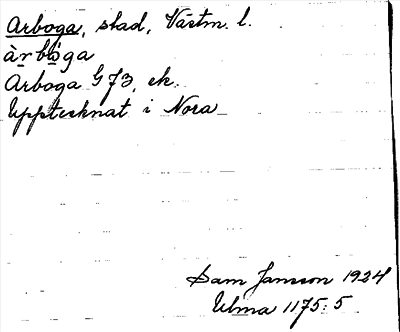 Arboga, stad, Västm. l.
àrbò̤ga
Arboga G 73, ek.
Upptecknat i Nora
Sam Jansson 1924
Ulma 1175:5